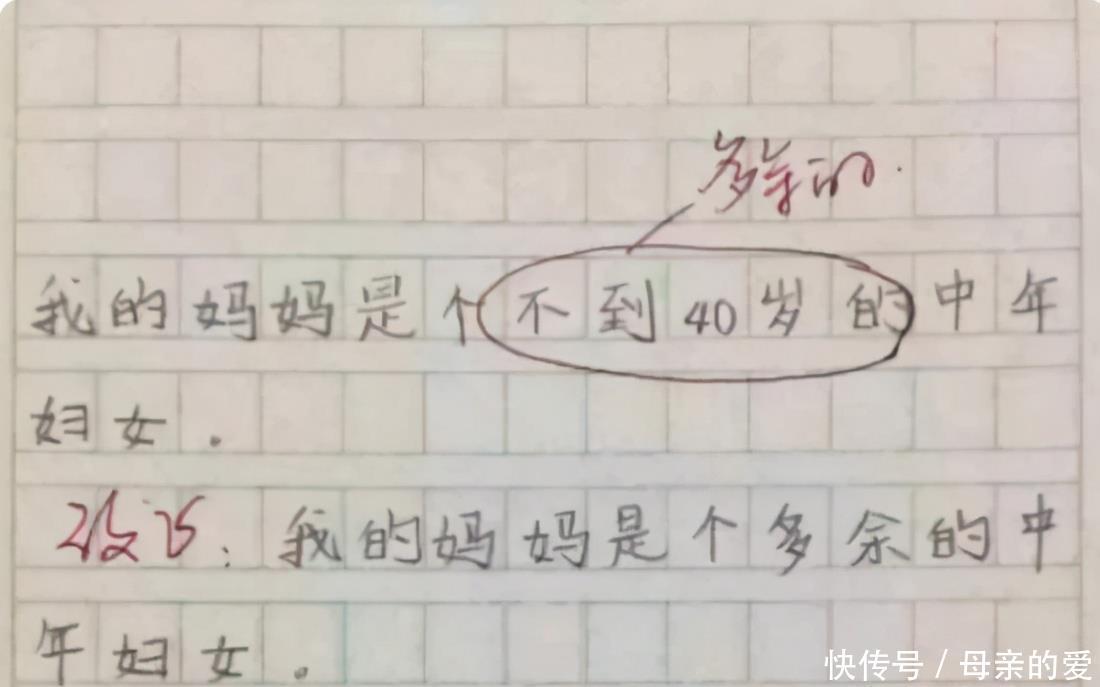 多余的.
我的妈妈是个不到40岁的中年
妇女.
改巧:我的妈妈是个多余的中
年妇女.
快传号/母亲的爱